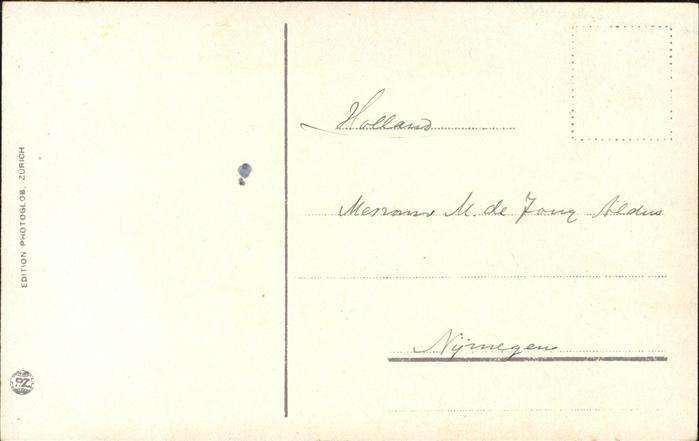 Holland
M. de Jong Aldus
Nijmegen
EDITION PHOTOGLOB, ZÜRICH
PZ